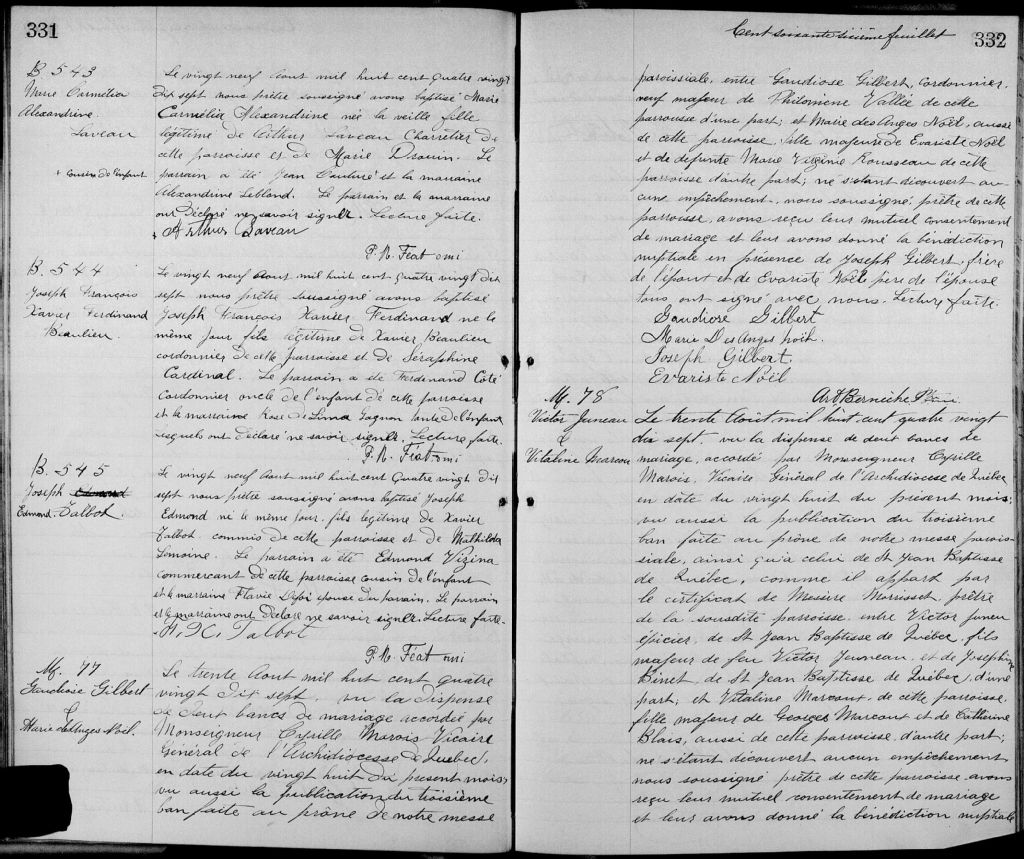 331
B. 543
Marie Carmélia
Alexandrine
Laveau
+ cousin de l'enfant
Le vingt neuf Aout mil huit cent quatre vingt
dix sept nous prêtre soussigné avons baptisé Marie
Carmélia Alexandrine née la veille fille
légitime de Arthur Laveau Charretier de
cette parroisse et de Marie Drouin. Le
parrain a été Jean et la marraine
Alexandrine Leblond. Le parrain et la marraine
ont déclaré ne savoir signer. Lecture faite.
Arthur Laveau
P. M. Féat omi
B. 544
Joseph François
Xavier Ferdinand
Beaulieu.
Le vingt neuf Aout mil huit cent quatre vingt dix
sept nous prêtre soussigné avons baptisé
Joseph François Xavier Ferdinand né le
même jour fils légitime de Xavier Beaulieu
cordonnier de cette parroisse et de Séraphine
Cardinal. Le parrain a été Ferdinand Coté
cordonnier oncle de l'enfant de cette parroisse
et la marraine Rose de Lima Gagnon tante de l'enfant
lesquels ont déclaré ne savoir signer. Lecture faite.
P. M. Féat omi
B. 545
Joseph Edmond
Edmond Talbot.
Le vingt neuf Aout mil huit cent quatre vingt dix
sept nous prêtre soussigné avons baptisé Joseph
Edmond né le même jour, fils légitime de Xavier
Talbot commis de cette parroisse et de Mathilda
Lemoine. Le parrain a été Edmond Vézina
commercant de cette parroisse cousin de l'enfant
et la marraine Flavie épouse du parrain. Le parrain
et la marraine ont déclaré ne savoir signer. Lecture faite.
F. X. Talbot
P. M. Féat omi
M. 77
Gaudiose Gilbert
&
Marie des Anges Noël.
Le trente Aout mil huit cent quatre
vingt dix sept, vu la dispense
de deux bancs de mariage accordée par
Monseigneur Cyrille Marois Vicaire
Général de l'Archidiocèse de Québec,
en date du vingt huit du présent mois,
vu aussi la publication du troisième
ban faite au prône de notre messe
Cent soixante sixième feuillet
332
paroissiale, entre Gaudiose Gilbert, cordonnier,
veuf majeur de Philomène Vallée de cette
parroisse d'une part; et Marie des Anges Noël, aussi
de cette paroisse, fille majeure de Evariste Noël
et de defunte Marie Virginie Rousseau de cette
parroisse d'autre part; ne s'étant découvert au-
cune empêchement, nous soussigné, prêtre de cette
parroisse, avons reçu leur mutuel consentement
de mariage et leur avons donné la bénédiction
nuptiale en présence de Joseph Gilbert, frère
de l'époux et de Evariste Noël père de l'épouse
tous ont signé avec nous. Lecture faite.
Gaudiose Gilbert
Marie Des Anges Noël.
Joseph Gilbert.
Evariste Noël
Ard Bernèche Ptre
M. 78
Victor Juneau
&
Vitaline Marcoux
Le trente Août mil huit cent quatre vingt
dix sept, vu la dispense de deux bancs de
mariage, accordé par Monseigneur Cyrille
Marois, Vicaire Général de l'Archidiocèse de Québec
en date du vingt huit du présent mois;
vu aussi la publication du troisième
ban faite au prône de notre messe parois-
siale, ainsi qu'à celui de St Jean Baptisse
de Québec, comme il appert par
le certificat de Messire Morrisset, prêtre
de la susdite parroisse, entre Victor Juneau
épicier, de St Jean Baptisse de Québec, fils
majeur de feu Victor Juneau, et de Josephine
Binet, de St Jean Baptisse de Québec, d'une
part; et Vitaline Marcoux, de cette paroisse,
fille majeur de Georges Marcoux et de Catherine
Blais, aussi de cette parroisse, d'autre part;
ne s'étant découvert aucun empêchement
nous soussigné prêtre de cette parroisse avons
reçu leur mutuel consentement de mariage
et leur avons donné la bénédiction nuptiale